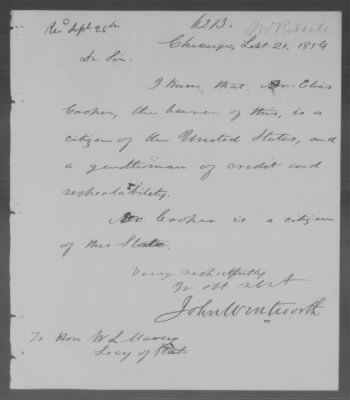 Recd Sept 25th
6213.
Chicago, Sept. 21, 1854
Dr Sir.
I know that Mr. Elias
Cooper, the bearer of this, is a
citizen of the United States, and
a gentleman of credit and
respectability.
Mr Cooper is a citizen
of this State.
Very respectfully
Yr obt svt
John Wentworth
To Hon. W L Marcy
Secy of Stat.